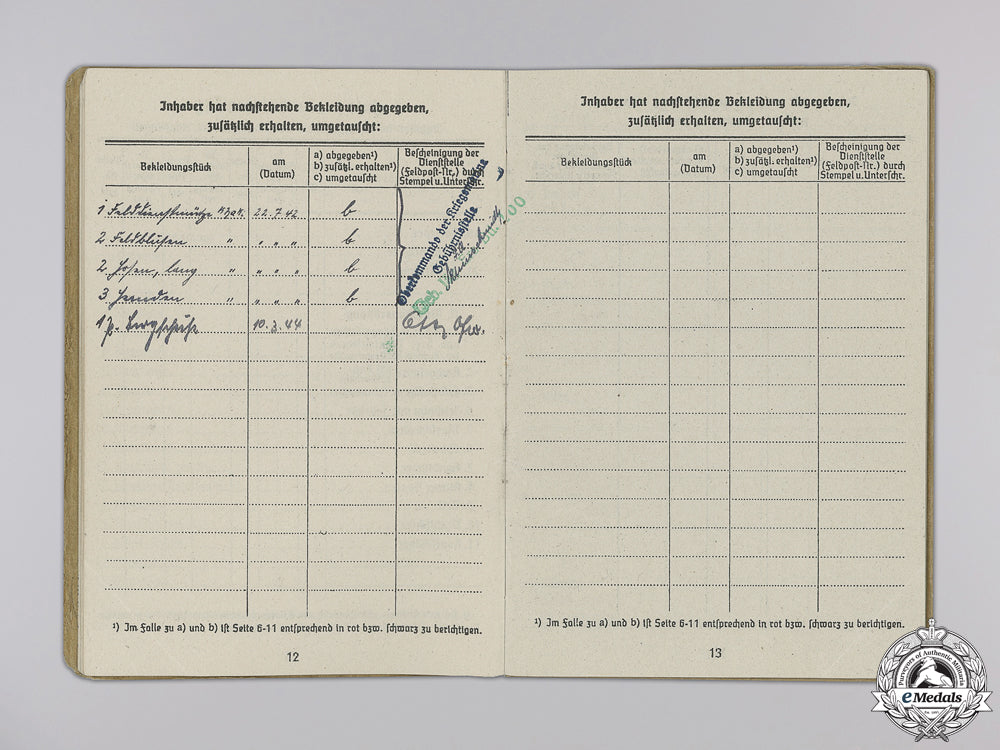 Inhaber hat nachstehende Bekleidung abgegeben,
zusätzlich erhalten, umgetauscht:
Bekleidungsstück
am
(Datum)
a) abgegeben¹)
b) zusätzl. erhalten¹)
c) umgetauscht
Bescheinigung der
Dienststelle
(Feldpost-Nr.) durch
Stempel u. Unterschr.
1 Felddienstmütze 22.7.42 b
2 Feldblusen " " " " b
2 Hosen, lang " " " " b
3 Hemden " " " " b
1 P. Bergschuhe 10.3.44
Oberkommando der Kriegsmarine
Gebührnisstelle
¹) Im Falle zu a) und b) ist Seite 6-11 entsprechend in rot bzw. schwarz zu berichtigen.
12
Inhaber hat nachstehende Bekleidung abgegeben,
zusätzlich erhalten, umgetauscht:
Bekleidungsstück
am
(Datum)
a) abgegeben¹)
b) zusätzl. erhalten¹)
c) umgetauscht
Bescheinigung der
Dienststelle
(Feldpost-Nr.) durch
Stempel u. Unterschr.
¹) Im Falle zu a) und b) ist Seite 6-11 entsprechend in rot bzw. schwarz zu berichtigen.
13
Purveyors of Authentic Militaria
eMedals